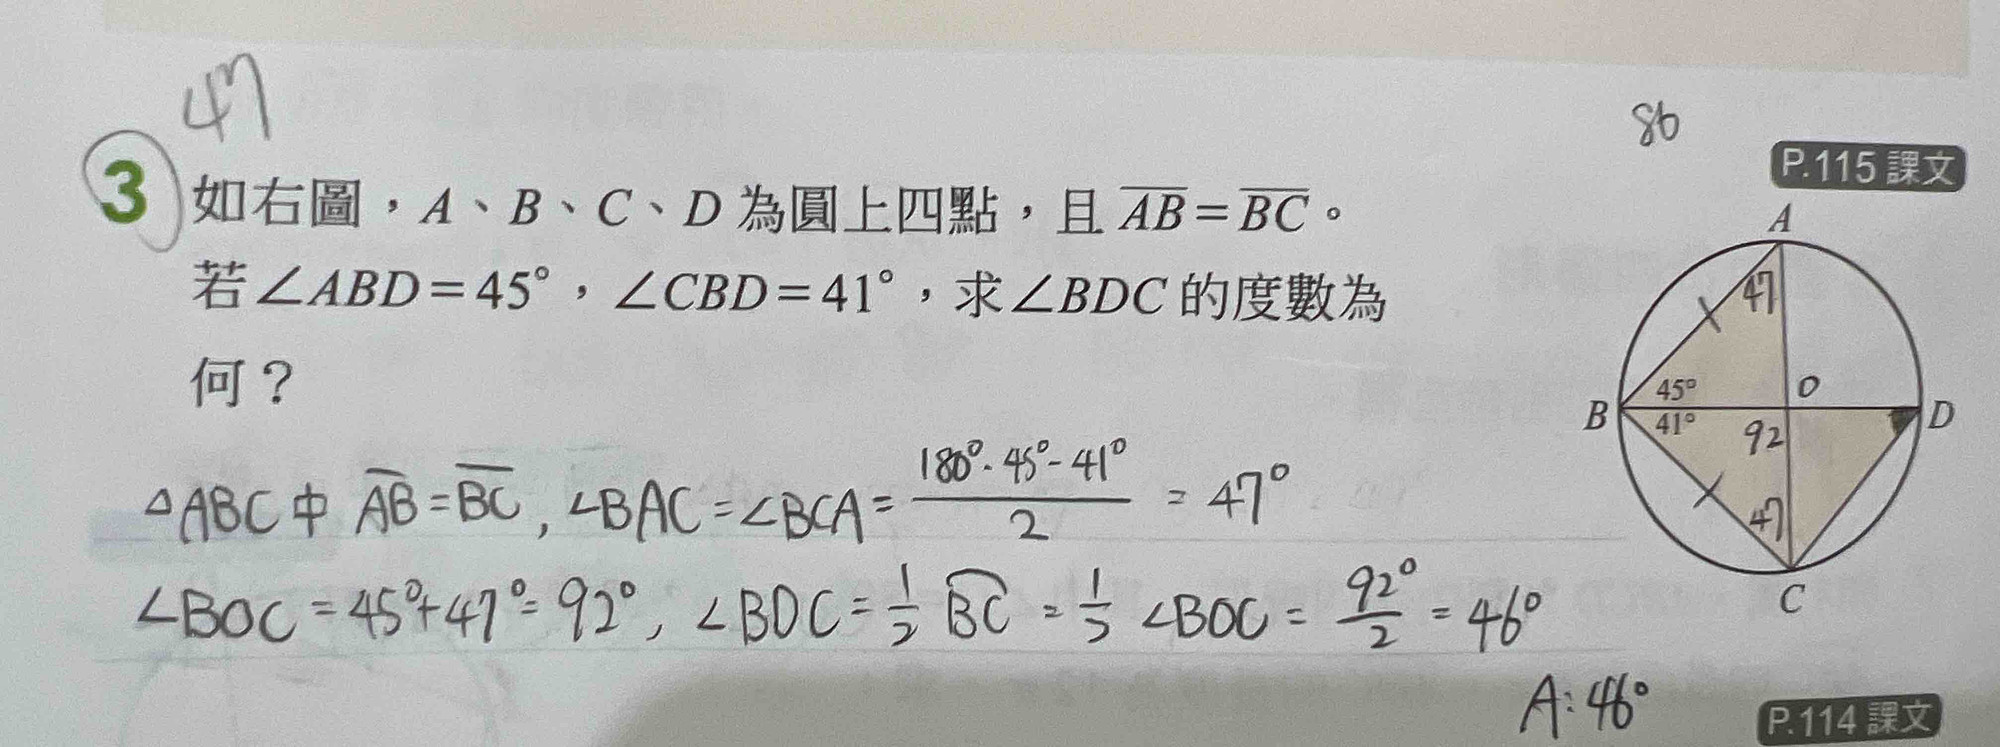 47
86
P.115 課文
3 如右圖，A、B、C、D 為圓上四點，且 \overline{AB}=\overline{BC}。
若∠ABD=45°，∠CBD=41°，求∠BDC 的度數為
何？
A
47
45°
O
B
41°
92
D
47
C
△ABC中 \overline{AB}=\overline{BC}, ∠BAC=∠BCA= \frac{180°-45°-41°}{2} = 47°
∠BOC = 45°+47°= 92°, ∠BDC = \frac{1}{2} \overset{\frown}{BC} = \frac{1}{2} ∠BOC = \frac{92°}{2} = 46°
A: 46°
P.114 課文